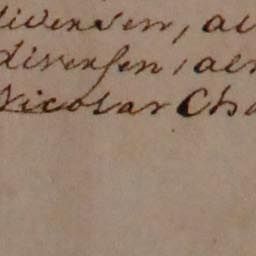 diversen, ae
diversen, aen
Nicolar Cha